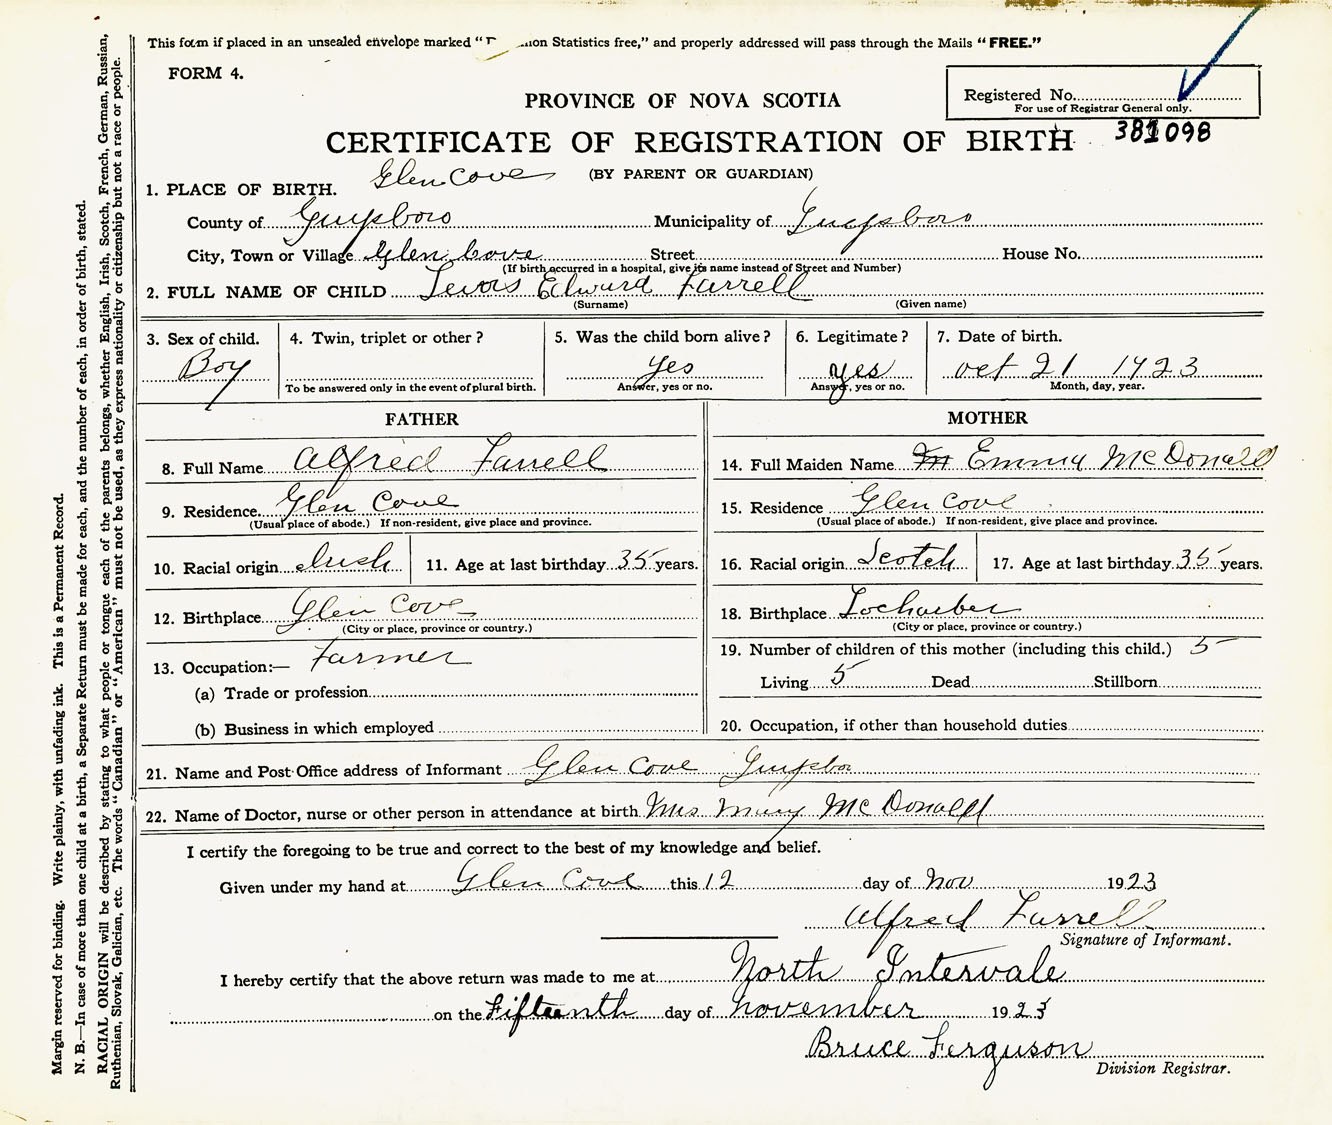 This form if placed in an unsealed envelope marked "D nion Statistics free," and properly addressed will pass through the Mails "FREE."
FORM 4.
Registered No.
For use of Registrar General only.
381098
PROVINCE OF NOVA SCOTIA
CERTIFICATE OF REGISTRATION OF BIRTH
(BY PARENT OR GUARDIAN)
1. PLACE OF BIRTH. Glen Cove
County of Guysboro Municipality of Guysboro
City, Town or Village Glen Cove Street House No.
(If birth occurred in a hospital, give its name instead of Street and Number)
2. FULL NAME OF CHILD Lewis Edward Farrell
(Surname) (Given name)
3. Sex of child. 4. Twin, triplet or other? 5. Was the child born alive? 6. Legitimate? 7. Date of birth.
Boy yes yes oct 21 1923
To be answered only in the event of plural birth. Answer, yes or no. Answer, yes or no. Month, day, year.
FATHER MOTHER
8. Full Name Alfred Farrell 14. Full Maiden Name Emmy McDonald
9. Residence Glen Cove 15. Residence Glen Cove
(Usual place of abode.) If non-resident, give place and province. (Usual place of abode.) If non-resident, give place and province.
10. Racial origin Irish 11. Age at last birthday 35 years. 16. Racial origin Scotch 17. Age at last birthday 35 years.
12. Birthplace Glen Cove 18. Birthplace Lochaber
(City or place, province or country.) (City or place, province or country.)
13. Occupation:— Farmer 19. Number of children of this mother (including this child.) 5
(a) Trade or profession Living 5 Dead Stillborn
(b) Business in which employed 20. Occupation, if other than household duties
21. Name and Post Office address of Informant Glen Cove Guysboro
22. Name of Doctor, nurse or other person in attendance at birth Mrs Mary McDonald
I certify the foregoing to be true and correct to the best of my knowledge and belief.
Given under my hand at Glen Cove this 12 day of Nov 1923
Alfred Farrell
Signature of Informant.
I hereby certify that the above return was made to me at North Intervale
on the Fifteenth day of November 1923
Bruce Ferguson
Division Registrar.
Margin reserved for binding. Write plainly, with unfading ink. This is a Permanent Record.
N. B.—In case of more than one child at a birth, a Separate Return must be made for each, and the number of each, in order of birth, stated.
RACIAL ORIGIN will be described by stating to what people or tongue each of the parents belongs, whether English, Irish, Scotch, French, German, Russian,
Ruthenian, Slovak, Galician, etc. The words "Canadian" or "American" must not be used, as they express nationality or citizenship but not a race or people.